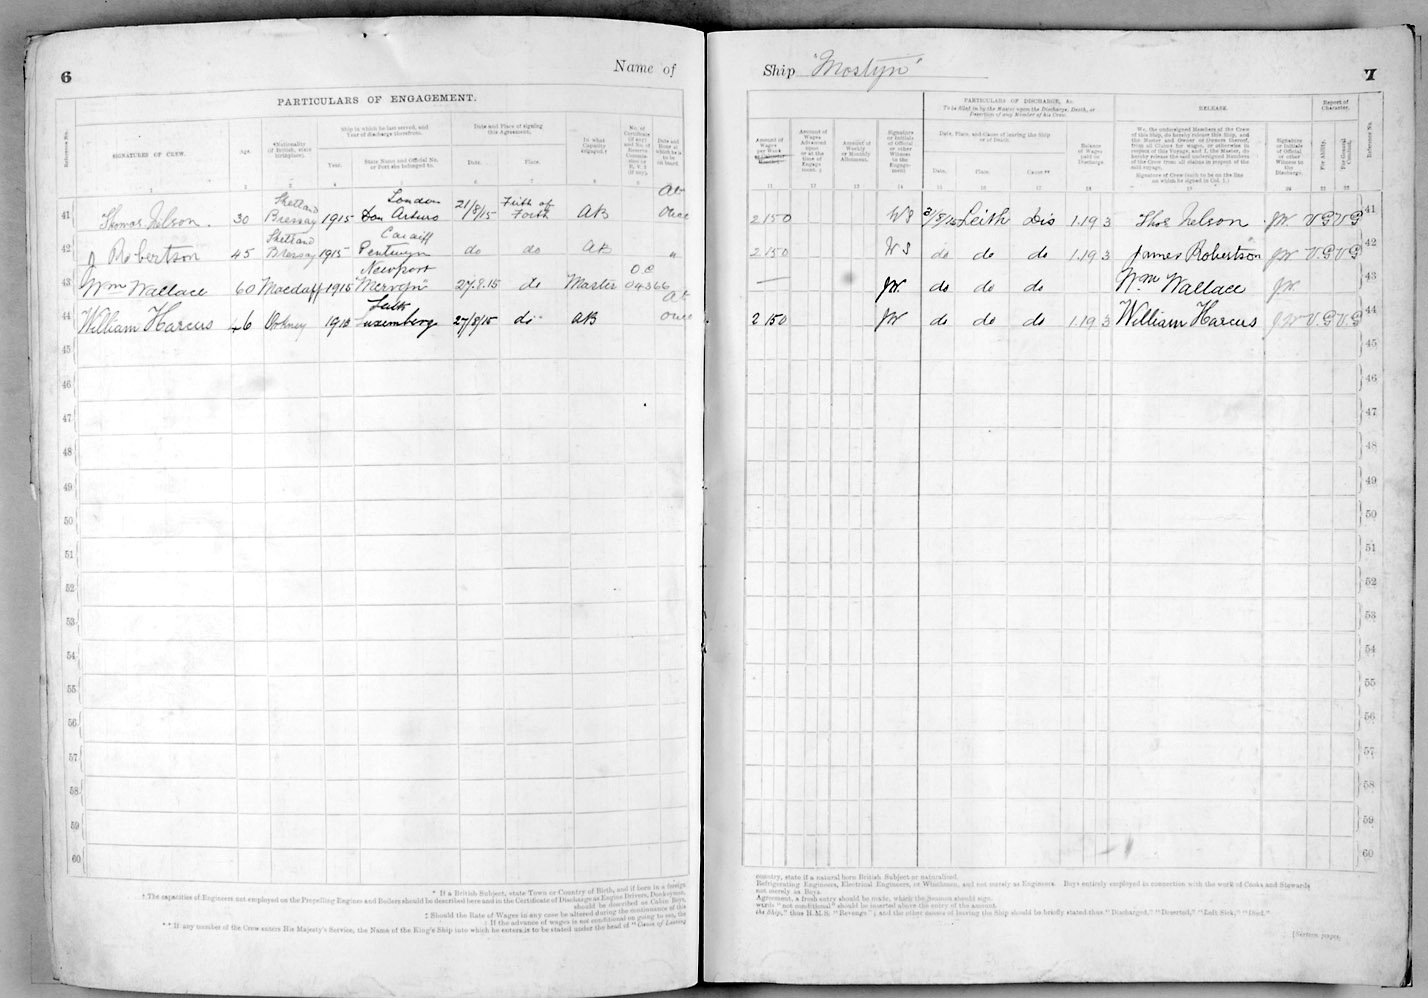 6
Name of
PARTICULARS OF ENGAGEMENT.
Reference No.
SIGNATURES OF CREW.
Age.
*Nationality
(if British, state
birthplace).
Ship in which he last served, and
Year of discharge therefrom.
Year.
State Name and Official No.
or Port she belonged to.
Date and Place of signing
this Agreement.
Date.
Place.
In what
Capacity
engaged.†
Date and
Hour at
which he is
to be
on board.
1 2 3 4
41 Thomas Nelson. 30 Shetland Bressay 1915 London Don Arturo 21/8/15 Firth of Forth AB At once
42 J Robertson 45 Shetland Bressay 1915 Cardiff Pentwyn do do AB "
43 Wm Wallace 60 Macduff 1915 Newport "Mervyn" 27.8.15 do Master O.C 04366
44 William Harcus 46 Orkney 1915 Leith Luxemberg 27/8/15 do AB At once
45
46
47
48
49
50
51
52
53
54
55
56
57
58
59
60
* If a British Subject, state Town or Country of Birth, and if born in a foreign
† The capacities of Engineers not employed on the Propelling Engines and Boilers should be described here and in the Certificate of Discharge as Engine Drivers, Donkeymen,
should be described as Cabin Boys,
‡ Should the Rate of Wages in any case be altered during the continuance of this
: If the advance of wages is not conditional on going to sea, the
** If any member of the Crew enters His Majesty's Service, the Name of the King's Ship into which he enters is to be stated under the head of "Cause of Leaving
Ship "Mostyn"
7
PARTICULARS OF DISCHARGE, &c.
To be filled in by the Master upon the Discharge, Death, or
Desertion of any Member of his Crew.
RELEASE.
Report of
Character.
Amount of
Wages
per Week
Amount of
Wages
Advanced
upon
or at the
time of
Engage-
ment. :
Amount of
Weekly
or Monthly
Allotment.
Signature
or Initials
of Official
or other
Witness
to the
Engage-
ment
Date, Place, and Cause of leaving the Ship
or of Death.
Date.
Place.
Cause**
Balance
of Wages
paid on
Discharge.
We, the undersigned Members of the Crew
of this Ship, do hereby release this Ship, and
the Master and Owner or Owners thereof,
from all Claims for wages, or otherwise in
respect of this Voyage, and I, the Master, do
hereby release the said undersigned Members
of the Crew from all claims in respect of the
said voyage.
Signature of Crew (each to be on the line
on which he signed in Col. 1.)
Signature
or Initials
of Official
or other
Witness to
the
Discharge.
For Ability.
For General
Conduct.
Reference No.
11 12 13 14 15 16 17 18 19 20
2 15 0 WS 31/8/15 Leith Dis 1.19 3 Thos Nelson JW VG VG 41
2 15 0 WS do do do 1.19 3 James Robertson JW V.G V G 42
JW. do do do Wm Wallace JW 43
2 15 0 JW do do do 1.19 3 William Harcus JW V.G V.G 44
45
46
47
48
49
50
51
52
53
54
55
56
57
58
59
60
country, state if a natural born British Subject or naturalised.
Refrigerating Engineers, Electrical Engineers, or Winchmen, and not merely as Engineers. Boys entirely employed in connection with the work of Cooks and Stewards
not merely as Boys.
Agreement, a fresh entry should be made, which the Seaman should sign.
words "not conditional" should be inserted above the entry of the amount.
the Ship," thus H.M.S. "Revenge"; and the other causes of leaving the Ship should be briefly stated thus "Discharged," "Deserted," "Left Sick," "Died."